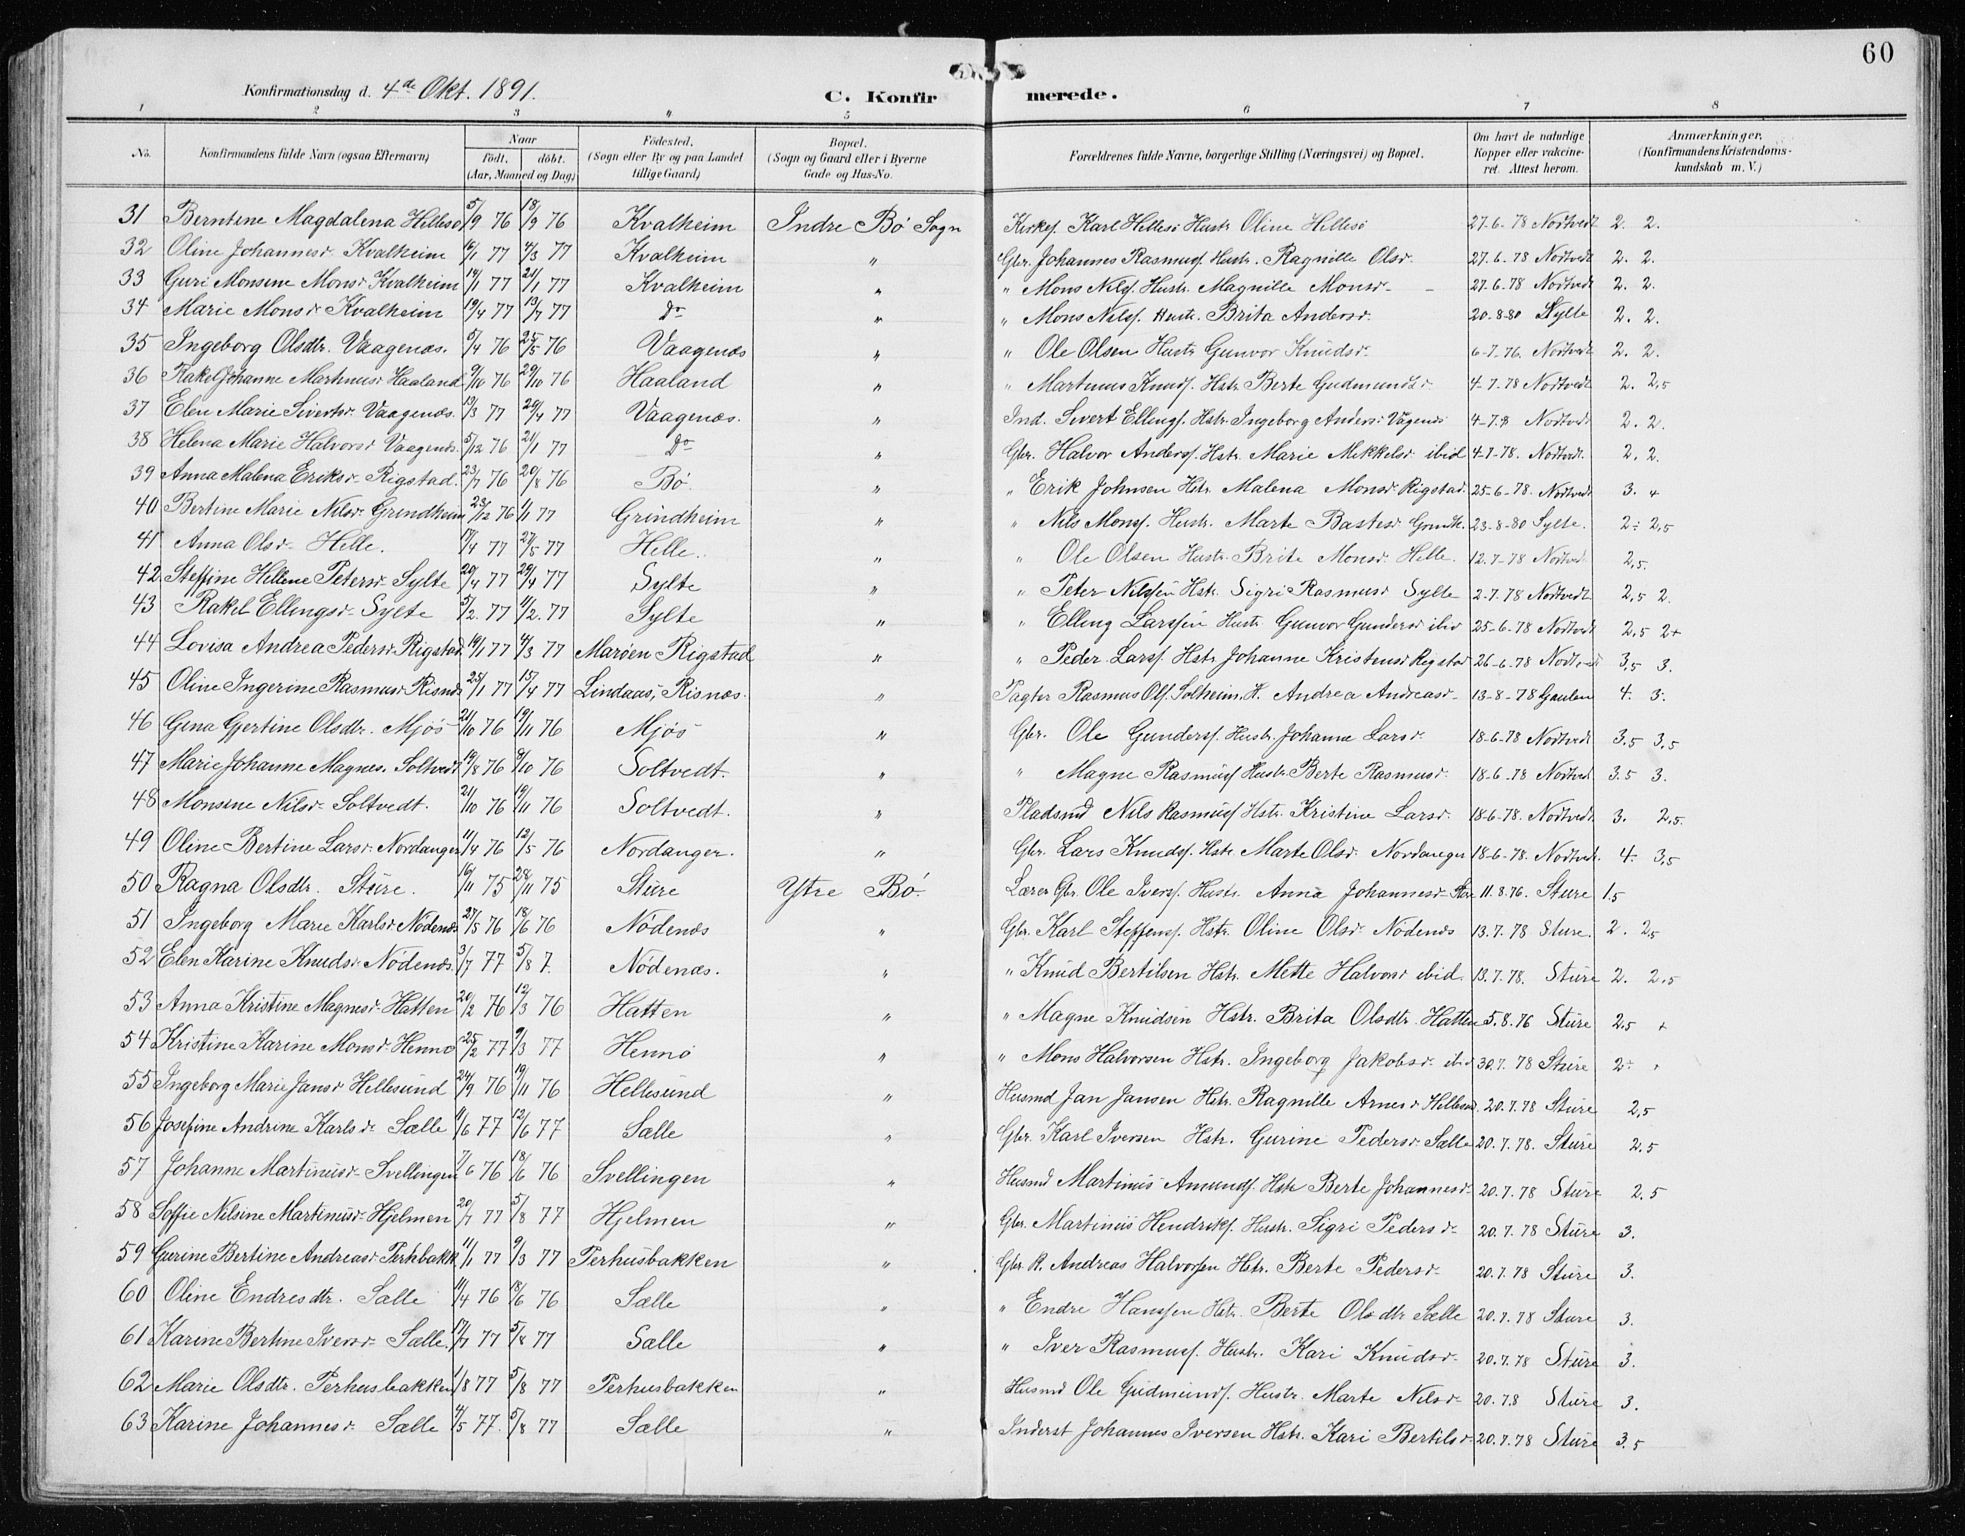 60
Konfirmationsdag d. 4de Okt. 1891.
C. Konfirmerede.
1 2 3 " 5 6 7 8
No. Konfirmandens fulde Navn (ogsaa Efternavn) Naar födt. döbt. (Aar, Maaned og Dag) Födested. (Sogn eller By og paa Landet tillige Gaard) Bopæl. (Sogn og Gaard eller i Byerne Gade og Hus-No. Forældrenes fulde Navne, borgerlige Stilling (Næringsvei) og Bopæl. Om havt de naturlige Kopper eller vakcineret. Attest herom. Anmærkninger. (Konfirmandens Kristendomskundskab m. V.)
31 Berntine Magdalena Hillesö 5/9 76 18/9 76 Kvalheim Indre Bö Sogn Kirkes. Karl Hillesö Hustr Oline Hillesö 27-6-78 Nodtvedt 2. 2.
32 Oline Johannesdr Kvalheim 16/1 77 4/3 77 Kvalheim " Gbr. Johannes Rasmuss. Hustr. Ragnille Olsdr. 27-6-78 Nodtvedt 2. 2.
33 Guri Monsine Monsdr Kvalheim 14/1 77 21/1 77 Kvalheim " " Mons Nilss. Hustr. Magnille Monsdr 27-6-78 Nodtvedt 2. 2.
34 Marie Monsdr Kvalheim 19/4 77 13/7 77 Do " " Mons Nilss. Hustr. Brita Andersdr. 20-8-80 Sylte 2. 2.
35 Ingeborg Olsdtr. Vaagenæs. 5/4 76 25/5 76 Vaagenæs " " Ole Olsen Hustr Gunvor Knudsdr. 6-7.76. Nodtvedt 2. 2.
36 Rakel Johanne Martinusdr Haaland 9/10 76 29/10 76 Haaland " " Martinus Knuds. Hstr. Berte Gudmundsdr 4-7-78 Nodtvedt 2. 2,5
37 Elen Marie Sivertsdr. Vaagenæs. 13/3 77 29/4 77 Vaagenæs. " Ind. Sivert Ellings. Hstr. Ingeborg Andersdr Vagenæs 4-7-78 Nodtvedt 2. 2.
38 Helena Marie Halvorsdr Vaagenæs. 5/12 76 21/1 77 Do " Gbr. Halvor Anderss. Hstr. Marie Mikkelsdr ibid 4-7-78. Nodtvedt. 2. 2.
39 Anna Malena Eriksdr. Rigstad. 23/7 76 20/8 76 Bö " " Erik Johnsen Hstr. Malena Monsdr Rigstad. 25-6-78. Nodtvedt 3. +
40 Bertine Marie Nilsdr. Grindheim 23/12 76 1/1 77 Grindheim " " Nils Monss. Hustr. Marte Bastesdr Grindh. 23-8-80 Sylte. 2÷ 2,5
41 Anna Olsdr. Helle. 17/4 77 27/5 77 Helle. " " Ole Olsen Hustr Brite Monsdr Helle. 12.7-78 Nodtvedt 2,5.
42 Steffine Hellene Petersdr Sylte 20/4 77 29/4 77 Sylte " " Peter Nilssen Hstr. Sigri Rasmusdr Sylte 2-7.78 Nodtvedt 2,5 2.
43 Rakel Ellingsdr Sylte 5/2. 77 11/2. 77 Sylte " " Elling Larssen Hustr. Gunvor Gundersdr ibid 25-6-78 Nodtvedt 2,5 2+
44 Lovisa Andrea Pedersdr Rigstad 19/1 77 4/3 77 Maröen Rigstad " " Peder Larss. Hstr Johanne Kristensdr Rigstad 26-6-78 Nodtvedt 3,5 3.
45 Oline Ingerine Rasmusdr Risnæs 25/1 77 15/4 77 Lindaas, Risnæs. " Pagter Rasmus Ols. Solheim. H. Andrea Andreasdr 13-8-78 Gaulen 4. 3.
46 Gina Gjertine Olsdtr. Mjös 21/10 76 19/11 76 Mjös " Gbr. Ole Gunders. Hustr. Johanne Larsdr. 18-6-78 Nodtvedt 3,5 3,5
47 Marie Johanne Magnes. Soltvedt 19/8 76 8/10 76 Soltvedt. " " Magne Rasmuss. Hustr Berte Rasmusdr. 18-6-78 Nodtvedt 3.5 3.
48 Monsine Nilsdr Soltvedt. 21/10 76 19/11 76 Soltvedt. " Pladsmd Nils Rasmuss. Hstr. Kristine Larsdr. 18-6-78. Nodtvedt 3. 2,5.
49 Oline Bertine Larsdr. Nordanger 11/4 76 12/5 76 Nordanger. " Gbr. Lars Knuds. Hstr. Marte Olsdr Nordanger 18-6-78. Nodtvedt. 4- 3,5
50 Ragna Olsdtr. Sture. 16/11 75 28/11 75 Sture Ytre Bö. Lærer Gbr. Ole Ivers. Hustr. Anna Johannesdr Sture 11.8.76. Sture 1,5
51 Ingeborg Marie Karlsdr Nödenæs 27/5 76 18/6 76 Nödenæs " Gbr. Karl Steffens. Hstr. Oline Olsdr Nödenæs 13.7.78 Sture. 2. 2,5
52 Elen Karine Knudsdr Nödenæs. 3/7 77 5/8 7. Nödenæs. " " Knud Bertilsen Hstr. Mette Halvorsdr ibid. 13.7.78. Sture 2. 2,5
53 Anna Kristine Magnesdr Hatten 20/2 76 12/3 76 Hatten " " Magne Knudsen Hstr. Brita Olsdtr. Hatten 5.8.76 Sture 2,5 +
54 Kristine Karine Monsdr Hennö 25/2 77 9/3 77 Hennö " " Mons Halvorsen Hstr. Ingeborg Jakobsdr. ibid 30.7.78 Sture 2÷
55 Ingeborg Marie Jansdr Hellesund 24/9 76 19/11 76 Hellesund " Husmd Jan Jansen Hstr. Ragnille Arnesdr Hellesund. 20.7.78 Sture 2,5
56 Josefine Andrine Karlsdr Sælle 1/6 77 12/6 77 Sælle " Gbr. Karl Iversen Hstr. Gurine Pedersdr Sælle 20.7.78. Sture 2,5
57 Johanne Martinusdr Svellingen 7/6 76 18/6 76 Svellingen " Husmd Martinus Amunds. Hstr Berte Johannesdr 20.7.78 Sture 2,5
58 Soffie Nilsine Martinusdr Hjelmen 20/7 77 5/8 77 Hjelmen " Gbr. Martinus Hendriks. Hustr. Sigri Pedersdr 20.7.78 Sture 3.
59 Gurine Bertine Andreasdr Perhbakk 11/1 77 9/3 77 Perhusbakken " Gbr. R. Andreas Halvorsen Hstr. Berte Pedersdr 20.7.78 Sture 3.
60 Oline Endresdtr. Sælle 11/4 76 18/6 76 Sælle " " Endre Hanssen Hstr. Berte Olsdtr Sælle 20.7.78 Sture 3.
61 Karine Bertine Iversdr Sælle. 17/7 77 5/8 77 Sælle " " Iver Rasmuss. Hustr. Kari Knudsdr 20.7.78 Sture 3.
62 Marie Olsdtr. Perhusbakken 1/8 77 5/8 77 Perhusbakken " Husmd Ole Gudmunds. Hustr. Marte Nilsdr 20.7.8 Sture 3.
63 Karine Johannesdr Sælle 4/5 77. 5/8 77 Sælle " Inderst Johannes Iversen Hstr. Kari Bertilsdr 20.7.78 Sture 3.5